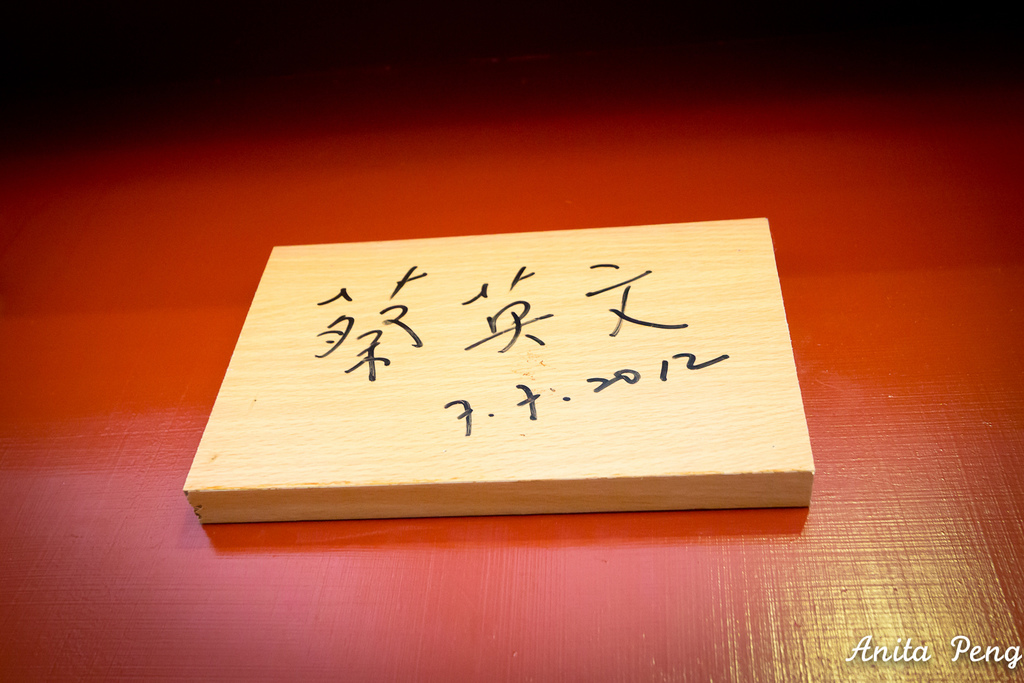 蔡英文
7.7.2012
Anita Peng